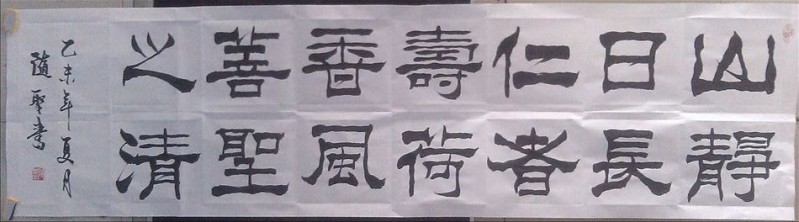 山靜
日長
仁者
壽荷
香風
善聖
之清
乙未年夏月
随聖书